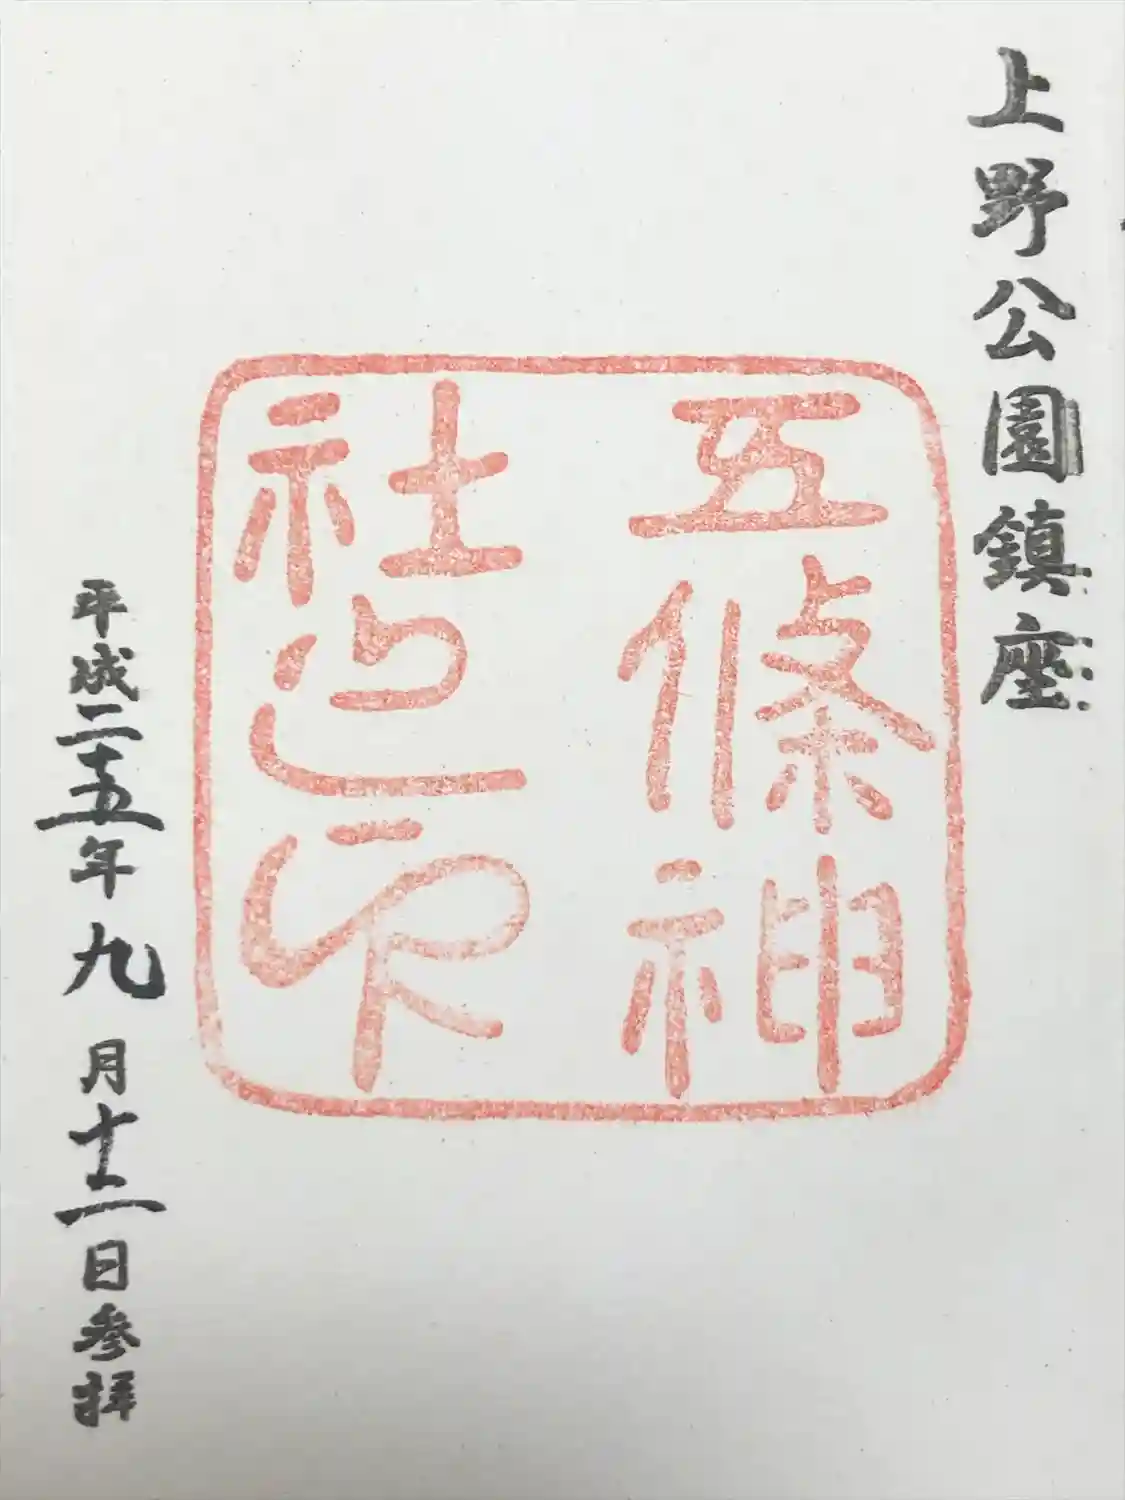 上野公園鎮座
五條神
社之印
平成二十五年九月十二日参拝